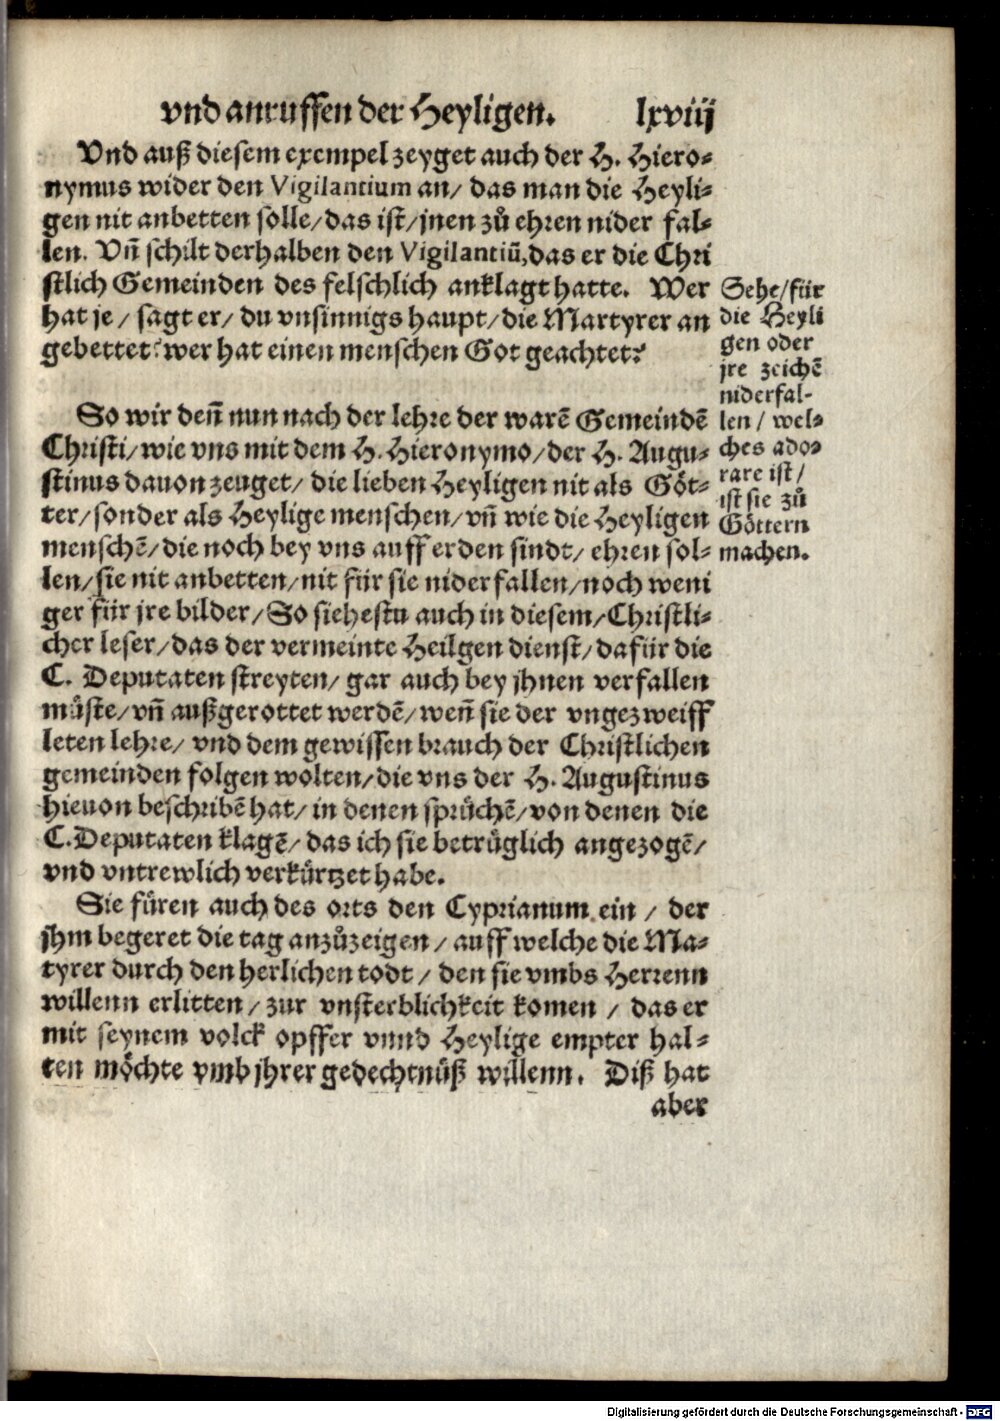 vnd anruffen der Heyligen. lxviij
Vnd auß diesem exempel zeyget auch der H. Hiero⸗
nymus wider den Vigilantium an/ das man die Heyli⸗
gen nit anbetten solle/das ist/jnen zů ehren nider fal⸗
len. Vn̄ schilt derhalben den Vigilantiū,das er die Chri
stlich Gemeinden des felschlich anklagt hatte. Wer
hat je/ sagt er/ du vnsinnigs haupt/die Martyrer an
gebettet? wer hat einen menschen Got geachtet?
So wir den̄ nun nach der lehre der warē Gemeindē
Christi/wie vns mit dem H. Hieronymo/der H. Augu⸗
stinus dauon zeuget/ die lieben Heyligen nit als Göt⸗
ter/sonder als Heylige menschen/vn̄ wie die Heyligen
menschē/die noch bey vns auff erden sindt/ ehren sol⸗
len/sie nit anbetten/nit für sie niderfallen/noch weni
ger für jre bilder/So siehestu auch in diesem/Christli⸗
cher leser/das der vermeinte Heilgen dienst/dafür die
C. Deputaten streyten/ gar auch bey jhnen verfallen
müste/vn̄ außgerottet werdē/wen̄ sie der vngezweiff
leten lehre/ vnd dem gewissen brauch der Christlichen
gemeinden folgen wolten/die vns der H. Augustinus
hieuon beschribē hat/in denen sprüchē/von denen die
C.Deputaten klagē/das ich sie betrüglich angezogē/
vnd vntrewlich verkürtzet habe.
Sie füren auch des orts den Cyprianum ein/ der
jhm begeret die tag anzůzeigen/auff welche die Ma⸗
tyrer durch den herlichen todt/ den sie vmbs Herrenn
willenn erlitten/zur vnsterblichkeit komen/ das er
mit seynem volck opffer vnnd Heylige empter hal⸗
ten möchte vmb jhrer gedechtnüß willenn. Diß hat
aber
Sehe/für
die Heyli
gen oder
jre zeichē
niderfal⸗
len/ wel⸗
ches ado⸗
rare ist/
ist sie zů
Göttern
machen.
Digitalisierung gefördert durch die Deutsche Forschungsgemeinschaft - DFG